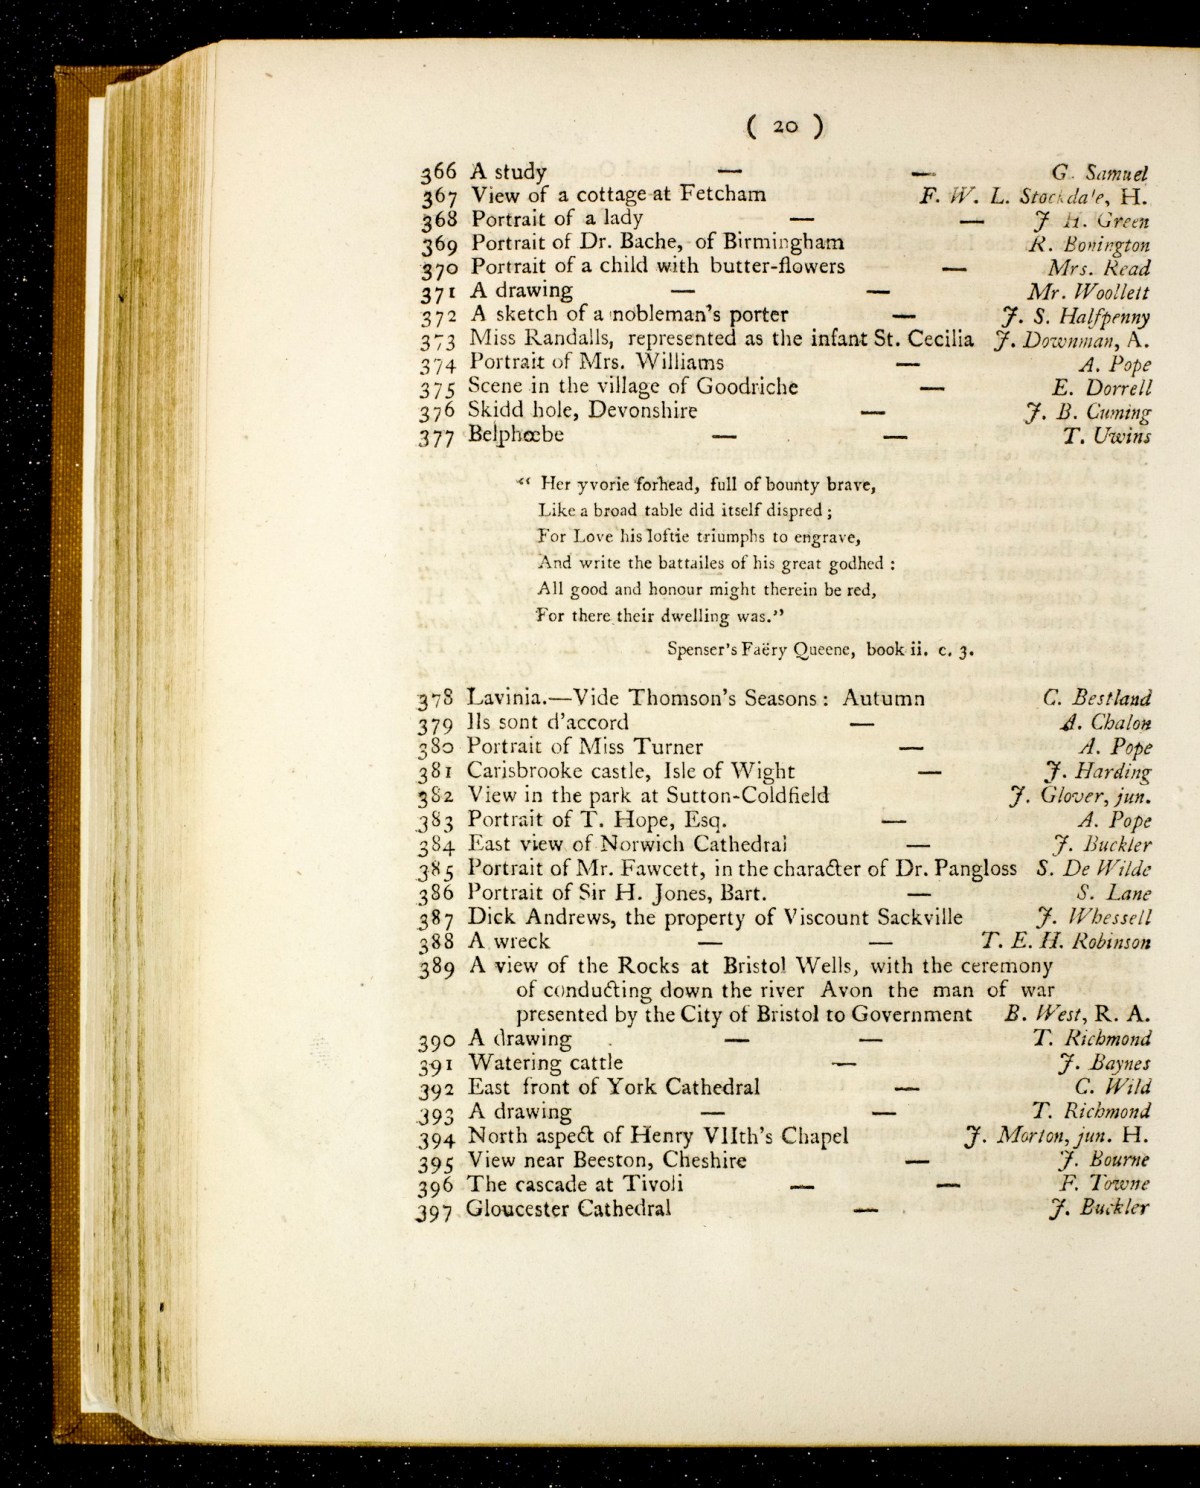 ( 20 )
366 A study — — G. Samuel
367 View of a cottage at Fetcham F. W. L. Stockdale, H.
368 Portrait of a lady — — J. H. Green
369 Portrait of Dr. Bache, of Birmingham R. Bonington
370 Portrait of a child with butter-flowers — Mrs. Read
371 A drawing — — Mr. Woollett
372 A sketch of a nobleman's porter — J. S. Halfpenny
373 Miss Randalls, represented as the infant St. Cecilia J. Downman, A.
374 Portrait of Mrs. Williams — A. Pope
375 Scene in the village of Goodriche — E. Dorrell
376 Skidd hole, Devonshire — J. B. Cuming
377 Belphœbe — — T. Uwins
“ Her yvorie forhead, full of bounty brave,
Like a broad table did itself dispred ;
For Love his loftie triumphs to engrave,
And write the battailes of his great godhed :
All good and honour might therein be red,
For there their dwelling was.”
Spenser's Faëry Queene, book ii. c. 3.
378 Lavinia.—Vide Thomson's Seasons : Autumn C. Bestland
379 Ils sont d'accord — A. Chalon
380 Portrait of Miss Turner — A. Pope
381 Carisbrooke castle, Isle of Wight — J. Harding
382 View in the park at Sutton-Coldfield J. Glover, jun.
383 Portrait of T. Hope, Esq. — A. Pope
384 East view of Norwich Cathedral — J. Buckler
385 Portrait of Mr. Fawcett, in the character of Dr. Pangloss S. De Wilde
386 Portrait of Sir H. Jones, Bart. — S. Lane
387 Dick Andrews, the property of Viscount Sackville J. Whessell
388 A wreck — — T. E. H. Robinson
389 A view of the Rocks at Bristol Wells, with the ceremony
of conducting down the river Avon the man of war
presented by the City of Bristol to Government B. West, R. A.
390 A drawing — — T. Richmond
391 Watering cattle — J. Baynes
392 East front of York Cathedral — C. Wild
393 A drawing — — T. Richmond
394 North aspect of Henry VIIth's Chapel J. Morton, jun. H.
395 View near Beeston, Cheshire — J. Bourne
396 The cascade at Tivoli — — F. Towne
397 Gloucester Cathedral — J. Buckler